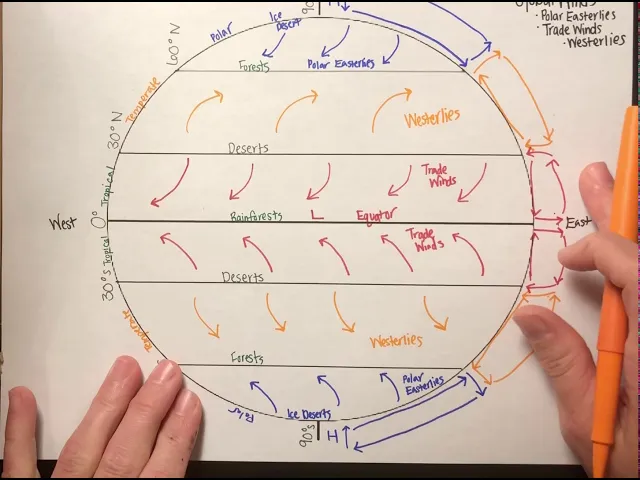 Global Winds
· Polar Easterlies
· Trade Winds
· Westerlies
90°
H
Polar
Ice
Desert
60° N
Forests
Polar Easterlies
Temperate
Westerlies
30° N
Deserts
Tropical
Trade
Winds
West
0°
Rainforests
L
Equator
East
Tropical
Trade
Winds
30° S
Deserts
Temperate
Westerlies
Forests
Polar
Easterlies
Polar
Ice Deserts
90°S
H